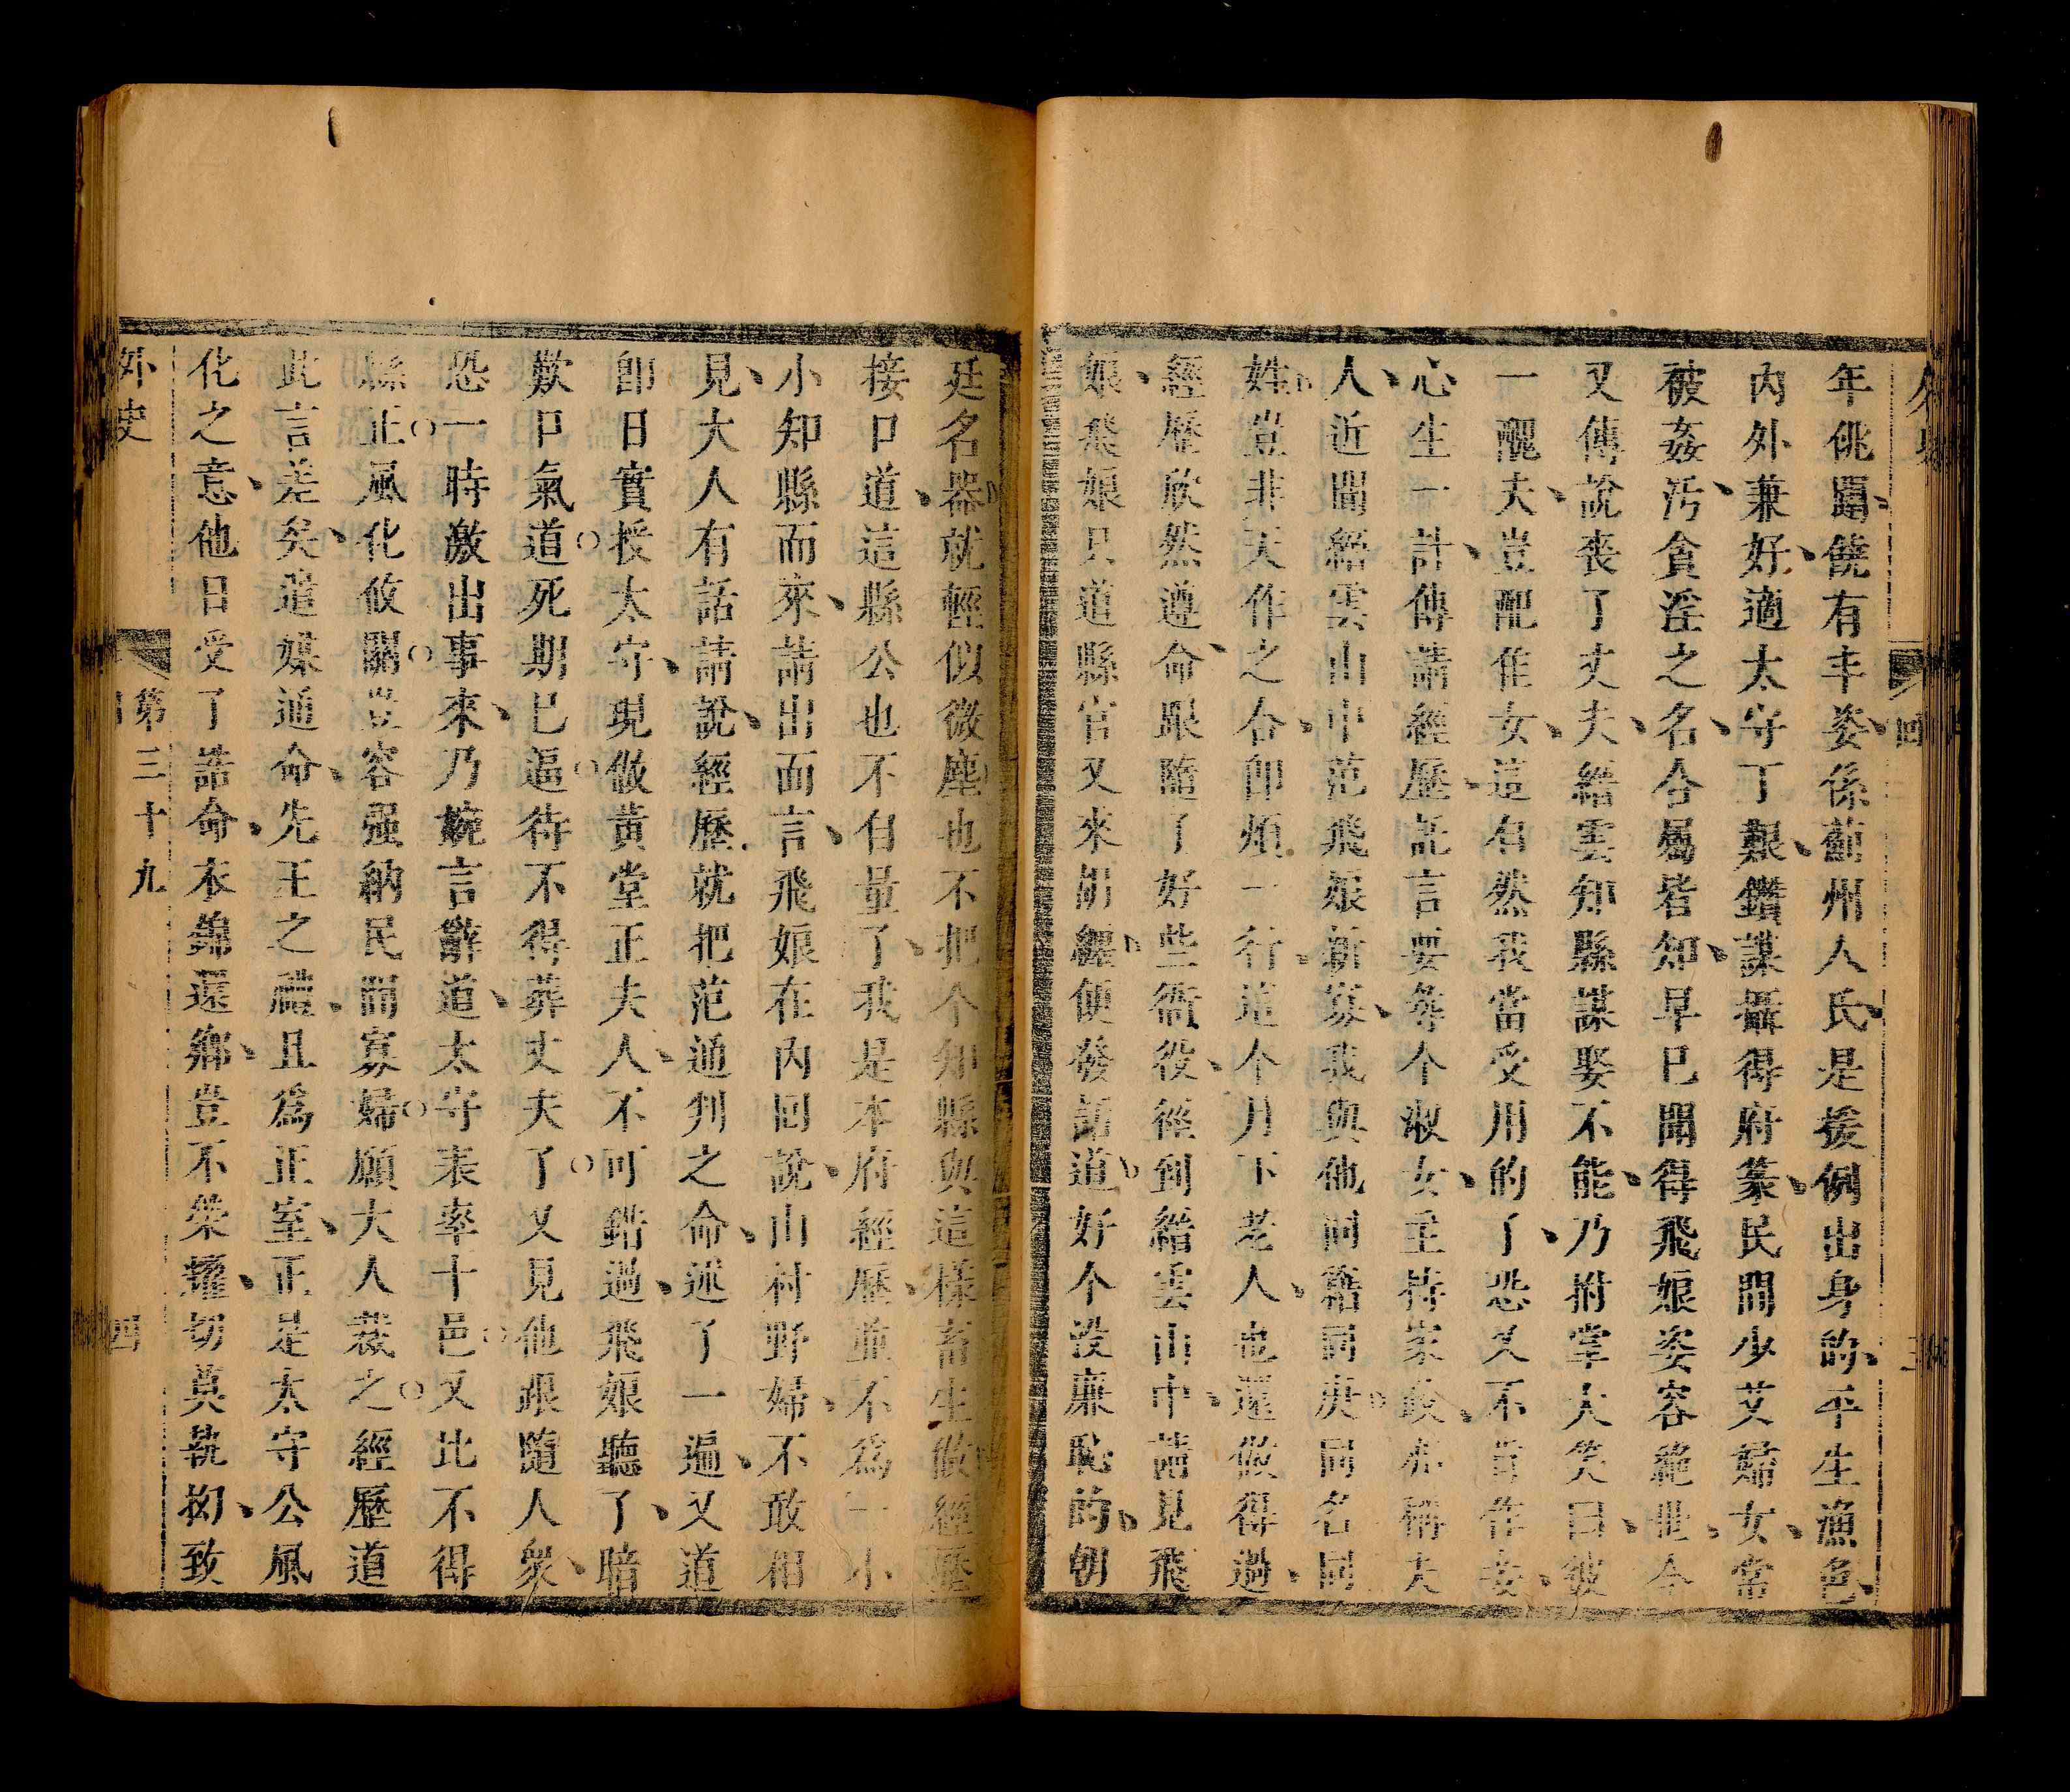 年佻𨅖饒有丰姿係薊州人氏是援例出身的平生漁色
内外兼好適太守丁艱鑽謀攝得府篆民間少艾婦女常
被姦汚貪淫之名合屬皆知早已聞得飛娘姿容絶世今
又傳說喪了丈夫縉雲知縣謀娶不能乃拊掌大笑曰彼
一醜夫豈配佳女這自然我當受用的了恐久不肯作妾
心生一計傳請經歷託言要尋个淑女主持家政亦稱夫
人近聞縉雲山中范飛娘新寡我與他同籍同庚同名同
姓豈非天作之合即煩一行這个月下老人也還做得過
經歷欣然遵命跟隨了好些衙役徑到縉雲山中請見飛
娘飛娘只道縣官又來胡纏便發話道好个沒廉恥的朝
廷名器就輕似微塵也不把个知縣與這樣畜生做經歷
接口道這縣公也不自量了我是本府經歷並不爲一小
小知縣而來請出面言飛娘在内回說山村野婦不敢相
見大人有話請說經歷就把范通判之命述了一遍又道
即日實授太守現做黃堂正夫人不可錯過飛娘聽了暗
歎口氣道死期已逼待不得葬丈夫了又見他跟隨人衆
恐一時激出事來乃婉言辭道太守表率十邑又比不得
縣正風化攸關豈容强納民間寡婦願大人裁之經歷道
此言差矣遣媒通命先王之禮且爲正室正是太守公風
化之意他日受了誥命衣錦還鄉豈不榮耀切莫執拗致
外史
第三十九
四